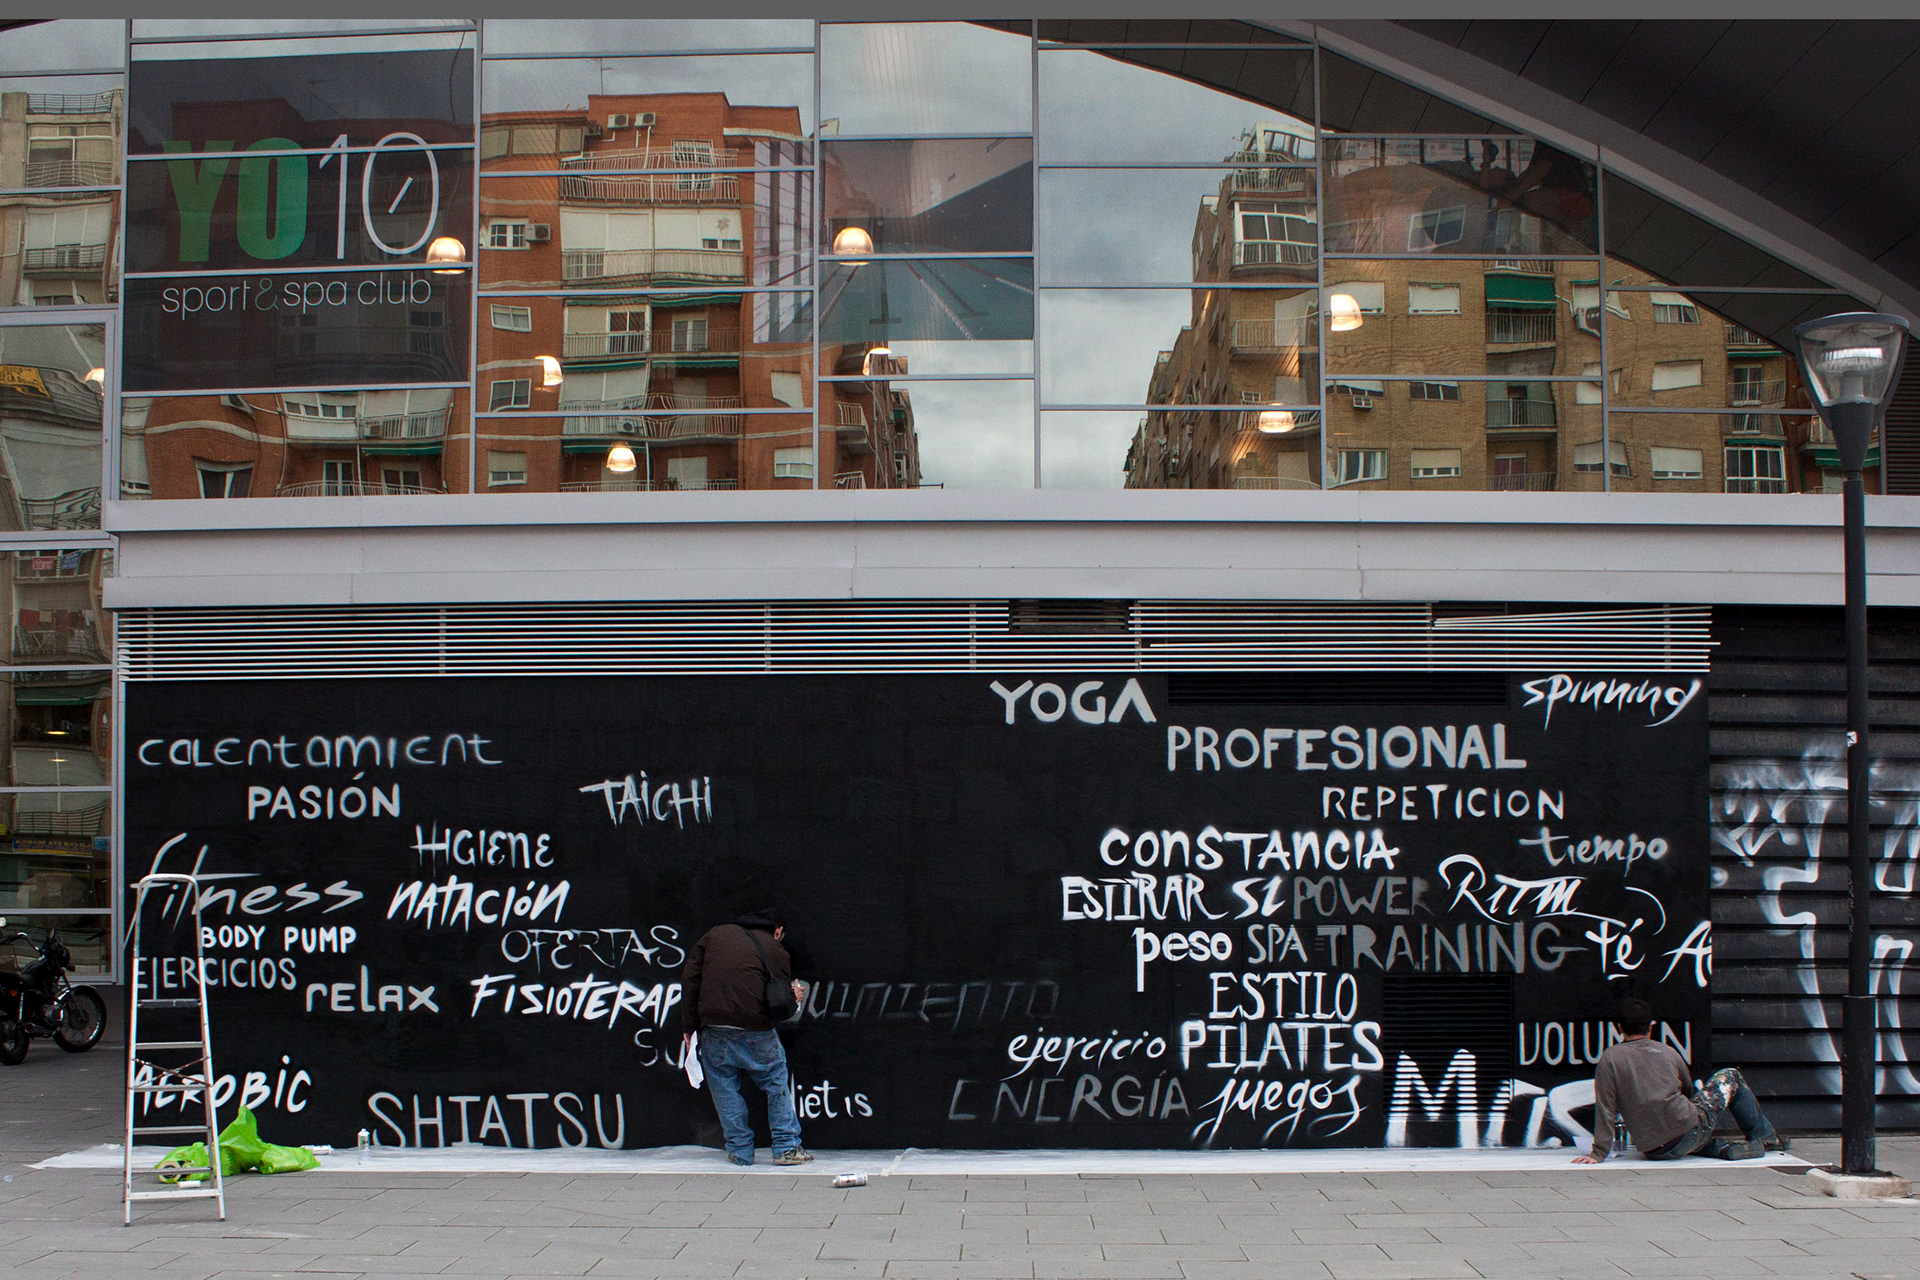 YO10
sport&spa club
YOGA
spinning
calentamient
PROFESIONAL
PASIÓN
TAICHI
REPETICION
HIGIENE
CONSTANCIA
tiempo
fitness
NATACIÓN
ESTIRAR
SI
POWER
RITM
BODY PUMP
OFERTAS
peso
SPA
TRAINING
té
EJERCICIOS
relax
FISIOTERAP
ESTILO
ejercicio
PILATES
VOLUMEN
AEROBIC
SHIATSU
ENERGÍA
juegos